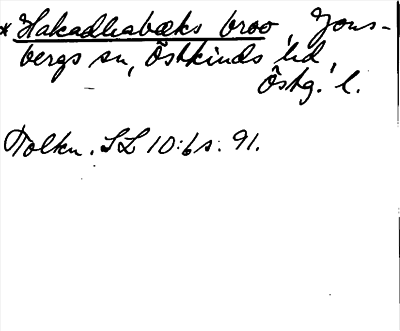 * Hakadhabæks broo, Jons-
bergs sn, Östkinds hd,
Östg. l.
Tolkn. SL 10:6 s. 91.